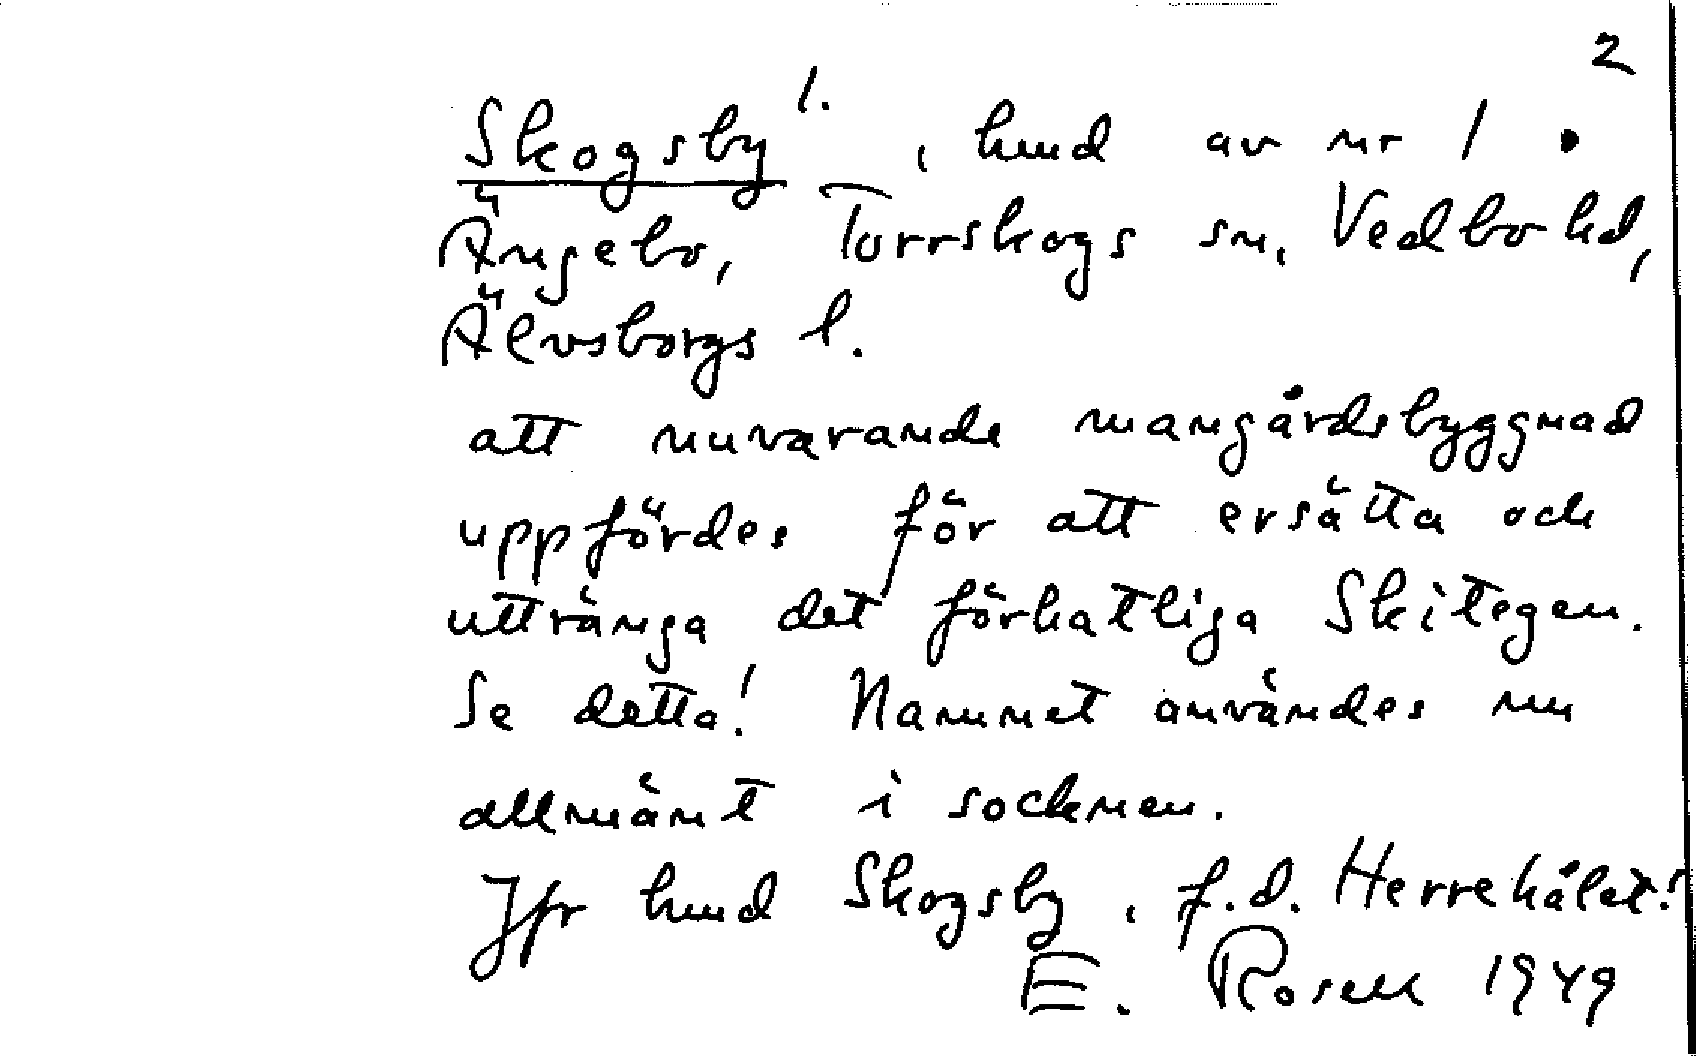 2
Skogsby 1. , hmd av nr 1 •
Ängebo, Torrskogs sn, Vedbo hd,
Älvsborgs l.
att nuvarande mangårdsbyggnad
uppfördes för att ersätta och
uttränga det förhatliga Skitegen.
Se detta! Namnet användes nu
allmänt i socknen.
Jfr hmd Skogsby , f.d. Herrehålet!
E. Rosell 1949